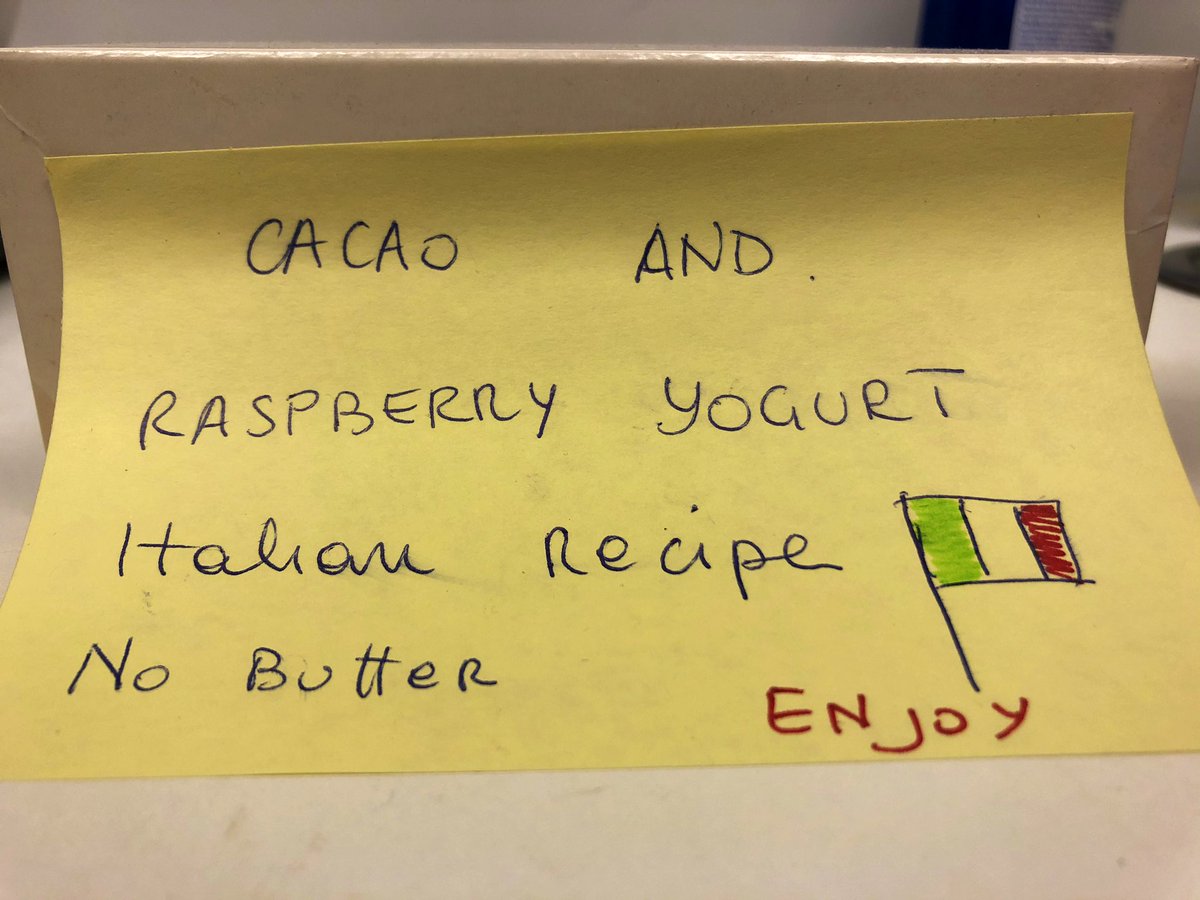 CACAO AND.
RASPBERRY YOGURT
Italian Recipe
No Butter
ENJOY